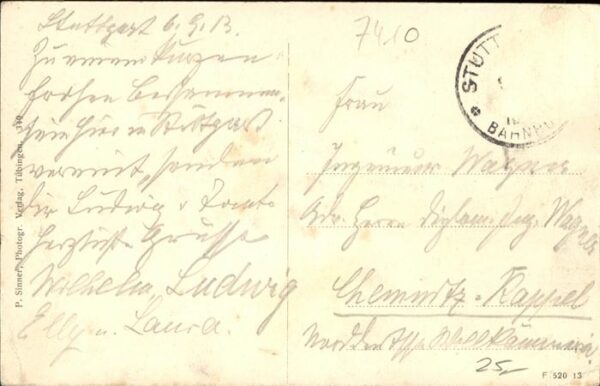 Stuttgart 6.9.13.
Zu einem kurzen
frohen Beisammen-
sein hier in Stuttgart
vereint, senden
dir Ludwig u Tante
herzliche Grüsse
Wilhelm, Ludwig
Elly u. Laura.
P. Sinner, Photogr. Verlag, Tübingen.
7410
STUTT
BAHNHO
Frau
Ingenieur Wagner
Adr. Herrn Diplom. Ing. Wagner
Chemnitz-Kappel
25,-
F 520 13